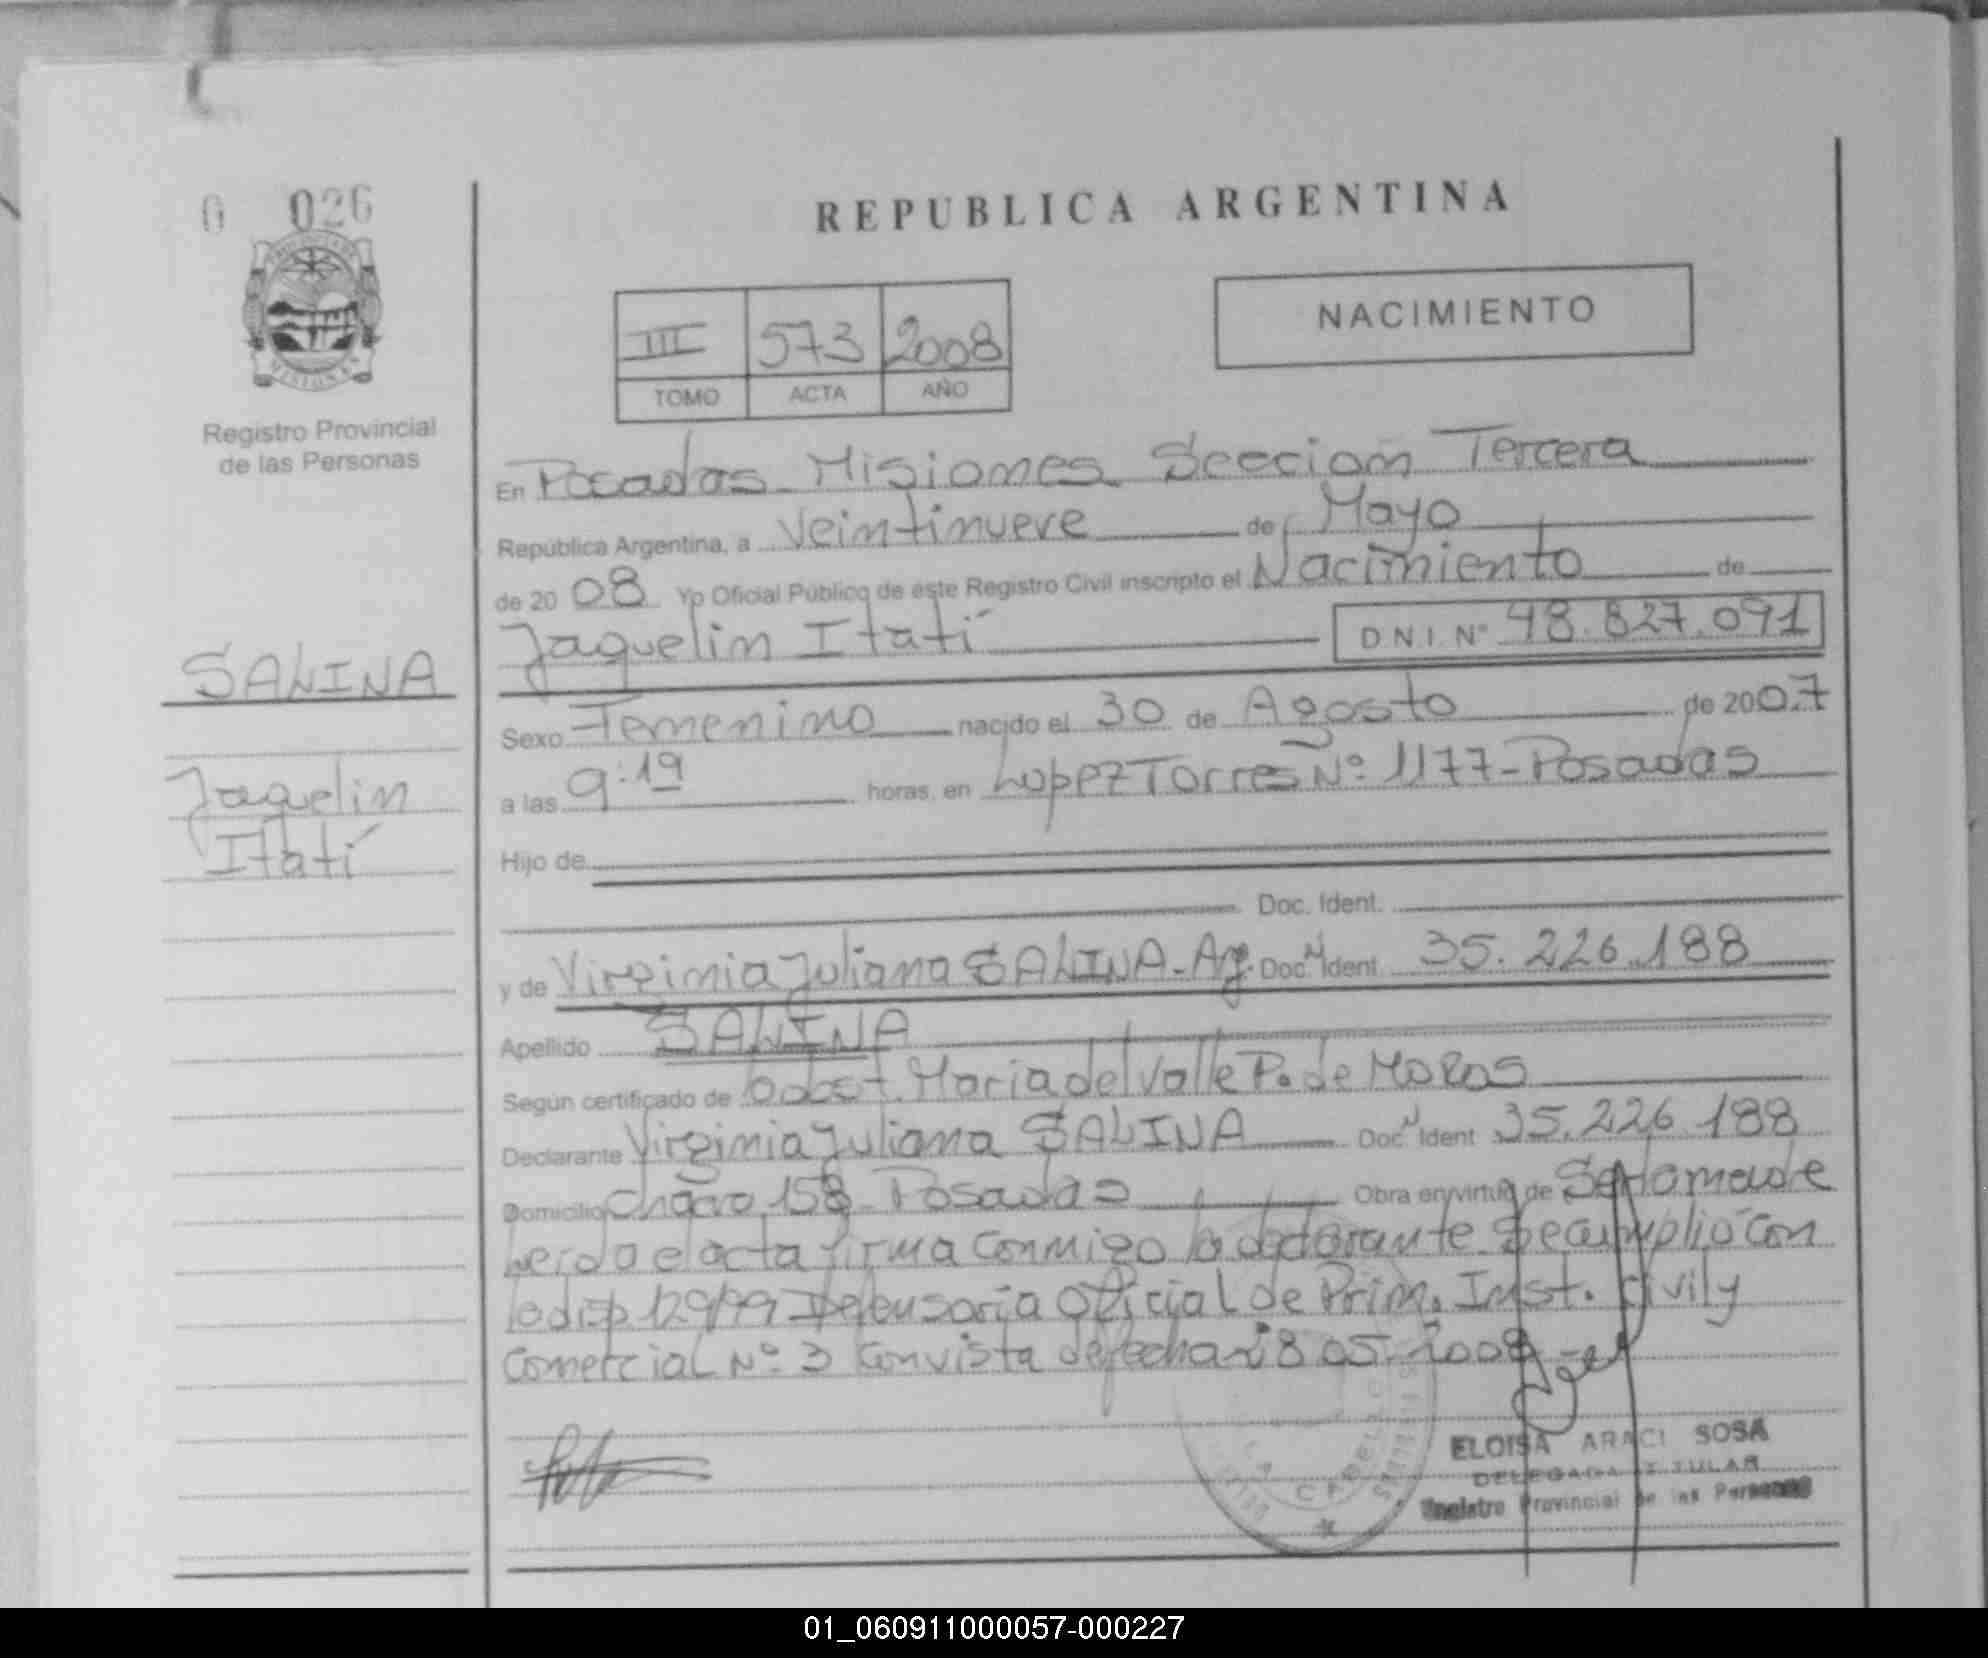 0 026
REPUBLICA ARGENTINA
NACIMIENTO
III 573 2008
TOMO ACTA AÑO
MISIONES
Registro Provincial
de las Personas
En Posadas Misiones Seccion Tercera
República Argentina, a Veintinueve de Mayo
de 2008 Yo Oficial Público de este Registro Civil inscripto el Nacimiento de
Jaquelin Itatí D.N.I. Nº 48.827.091
SALINA
Jaquelin
Itatí
Sexo Femenino nacido el 30 de Agosto de 2007
a las 9:19 horas, en Lopez Torres Nº 1177-Posadas
Hijo de
Doc. Ident.
y de Virginia Juliana SALINA-Arg. Doc N Ident. 35.226.188
Apellido SALINA
Según certificado de Obst. Maria del Valle P. de MOROS
Declarante Virginia Juliana SALINA Doc N Ident 35.226.188
Domicilio Chacra 158-Posadas Obra en virtud de Ser la madre
Leida el acta firma conmigo la declarante Se cumplió con
la disp 129/99 Defensoria Oficial de Prim. Inst. Civil y
Comercial Nº 3 Con vista de fecha 28 05 2008
ELOISA ARACI SOSA
DELEGADA TITULAR
Registro Provincial de las Personas
01_060911000057-000227